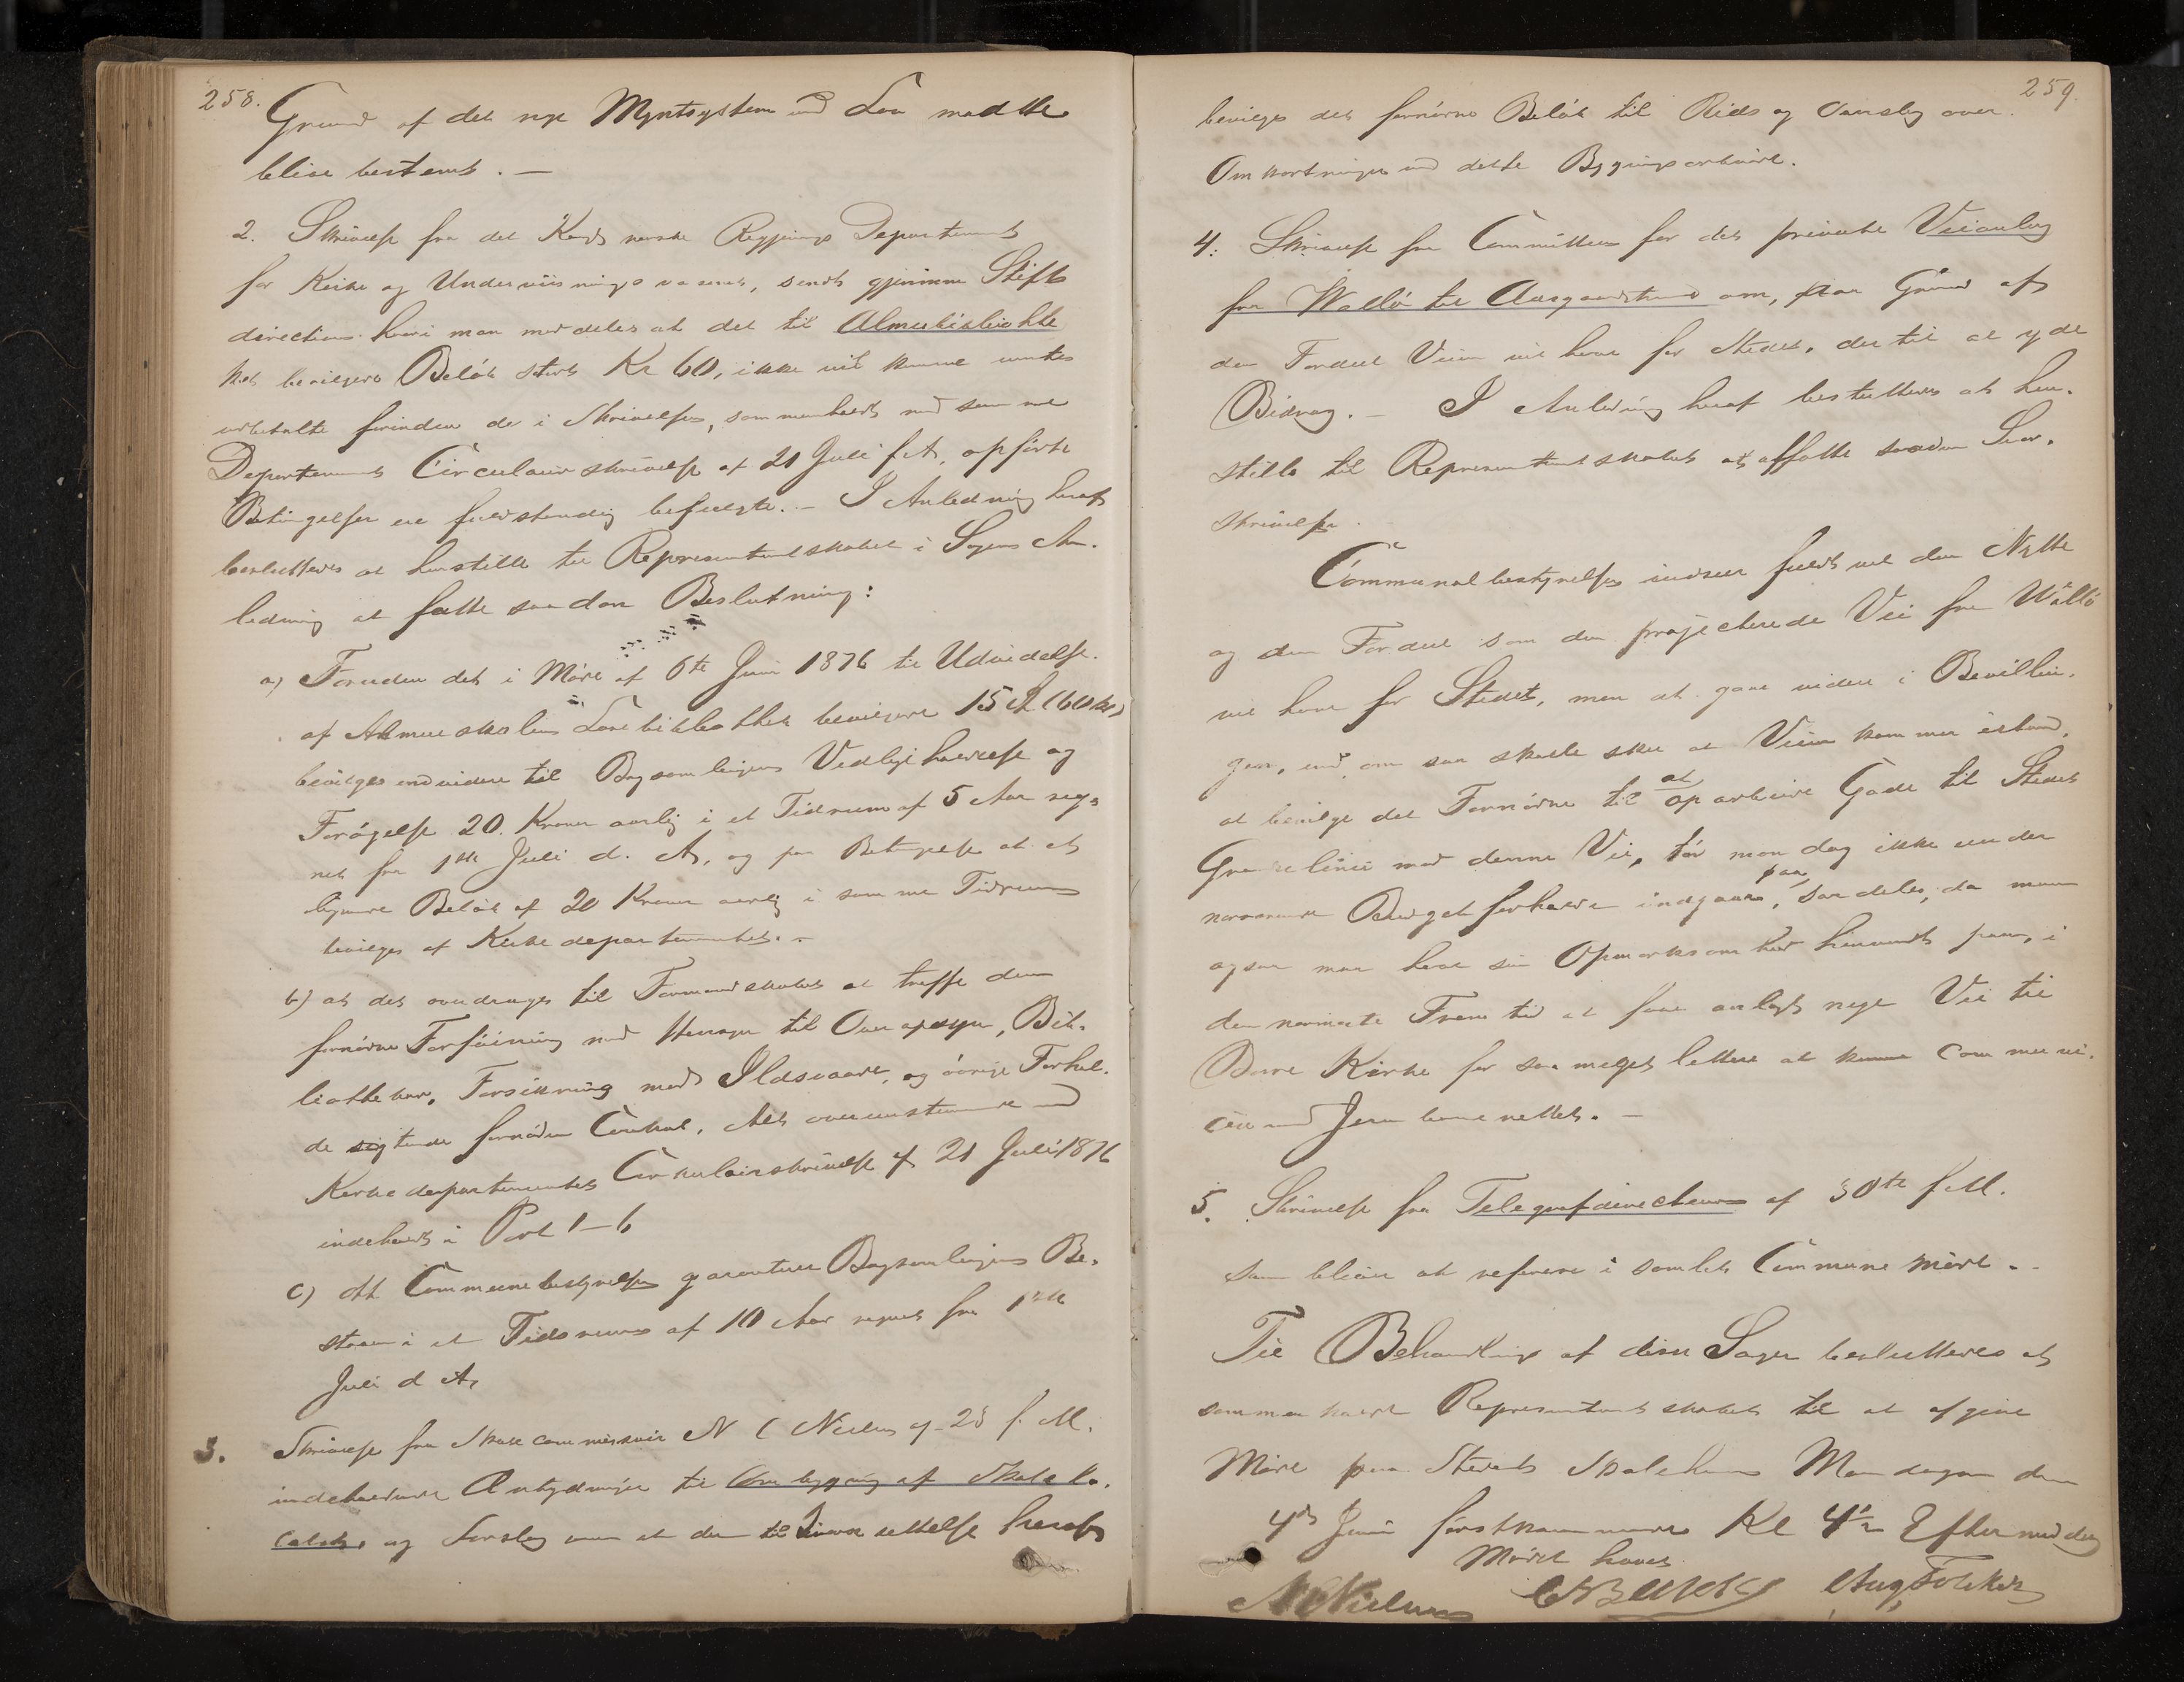 258.
Grund af det nye Myntsystem ved Lov maatte
blive bestemt. —
2. Skrivelse fra det Kongl norske Regjerings Departement
for Kirke og Underviisningsvæsenet, sendt gjennem Stifts
directionen hvori man meddeles at det til Almuebibliothe
ket bevilgede Beløb stort Kr 60, ikke vil kunne ventes
udbetalte forinden de i Skrivelsen, sammenholdt med samme
Departements Circulairskrivelse af 21 Juli f. A, opførte
Betingelser ere fuldstendig befulgte. — I Anledning heraf
besluttedes at henstille til Repræsentantskabet i Sagens An-
ledning at fatte saadan Beslutning:
a) Foruden det i Møde af 6te Juni 1876 til Udvidelse
af Almueskolens Lærebibliothek bevilgede 15 (60 kr)
bevilges endvidere til Bogsamlingens Vedligeholdelse og
Forøgelse 20. Kroner aarlig i et Tidsrum af 5 Aar reg-
net fra 1ste Juli d. A, og paa Betingelse at et
lignende Beløb af 20 Kroner aarlig i samme Tidsrum
bevilges af Kirkedepartementet. -
b) at det overdrages til Formandskabet at treffe den
fornødne Forføining med Hensyn til Overopsyn, Bib-
liothekar, Forsikring mod Ildsvaade, og øvrige Forhol-
de sigtende fornøden Control, Alt overeensstemmende med
Kirkedepartementets Cirkulairskrivelse af 21 Juli 1876
indeholdt i Post 1–6
c) At Communebestyrelsen garanterer Bogsamlingens Be-
staaen i et Tidsrum af 10 Aar regnet fra 1ste
Juli d A,
3. Skrivelse fra Skolecommissair N C Nielsen af 28 f. M.
indeholdende Antydninger til Ombygging af Skolelo-
calet, og Forslag om at den til Iverksettelse heraf
259.
bevilges det fornødne Beløb til Rids og Overslag over
Omkostninger ved dette Bygningsarbeide.
4. Skrivelse fra Committeen for det private Veianlæg
fra Wallø til Aasgaardstrand om, paa Grund af
den Fordeel Veien vil have for Stedet, dertil at yde
Bidrag. — I Anledning heraf besluttedes at hen-
stille til Repræsentantskabet at affatte saadan Svar-
skrivelse.
Communalbestyrelsen indseer fuldt vel den Nytte
og den Fordeel som den projecterede Vei fra Wallø
vil have for Stedet, men at gaae videre i Bevillin-
gen, end, om saa skulde skee at Veien kommer istand,
at bevilge det Fornødne til at oparbeide Gade til Stedets
Grændselinie mod denne Vei, tør man dog ikke under
nærværende Budgetforholde indgaae paa, særdeles, da man
ogsaa maa have sin Opmærksomhed henvendt paa, i
den nærmeste Fremtid at faae anlagt nye Vei til
Borre Kirke for saa meget lettere at kunne communi-
cere med Jernbanenettet. —
5. Skrivelse fra Telegrafdirecteuren af 30te f. M.
som bliver at referere i samlet Communemøde. -
Til Behandling af disse Sager besluttedes at
sammenkalde Repræsentantskabet til at afgive
Møde paa Stedets Skolehuus Mandagen den
4de Juni førstkommende Kl 4½ Eftermiddag
Mødet hævet
N C Nielsen